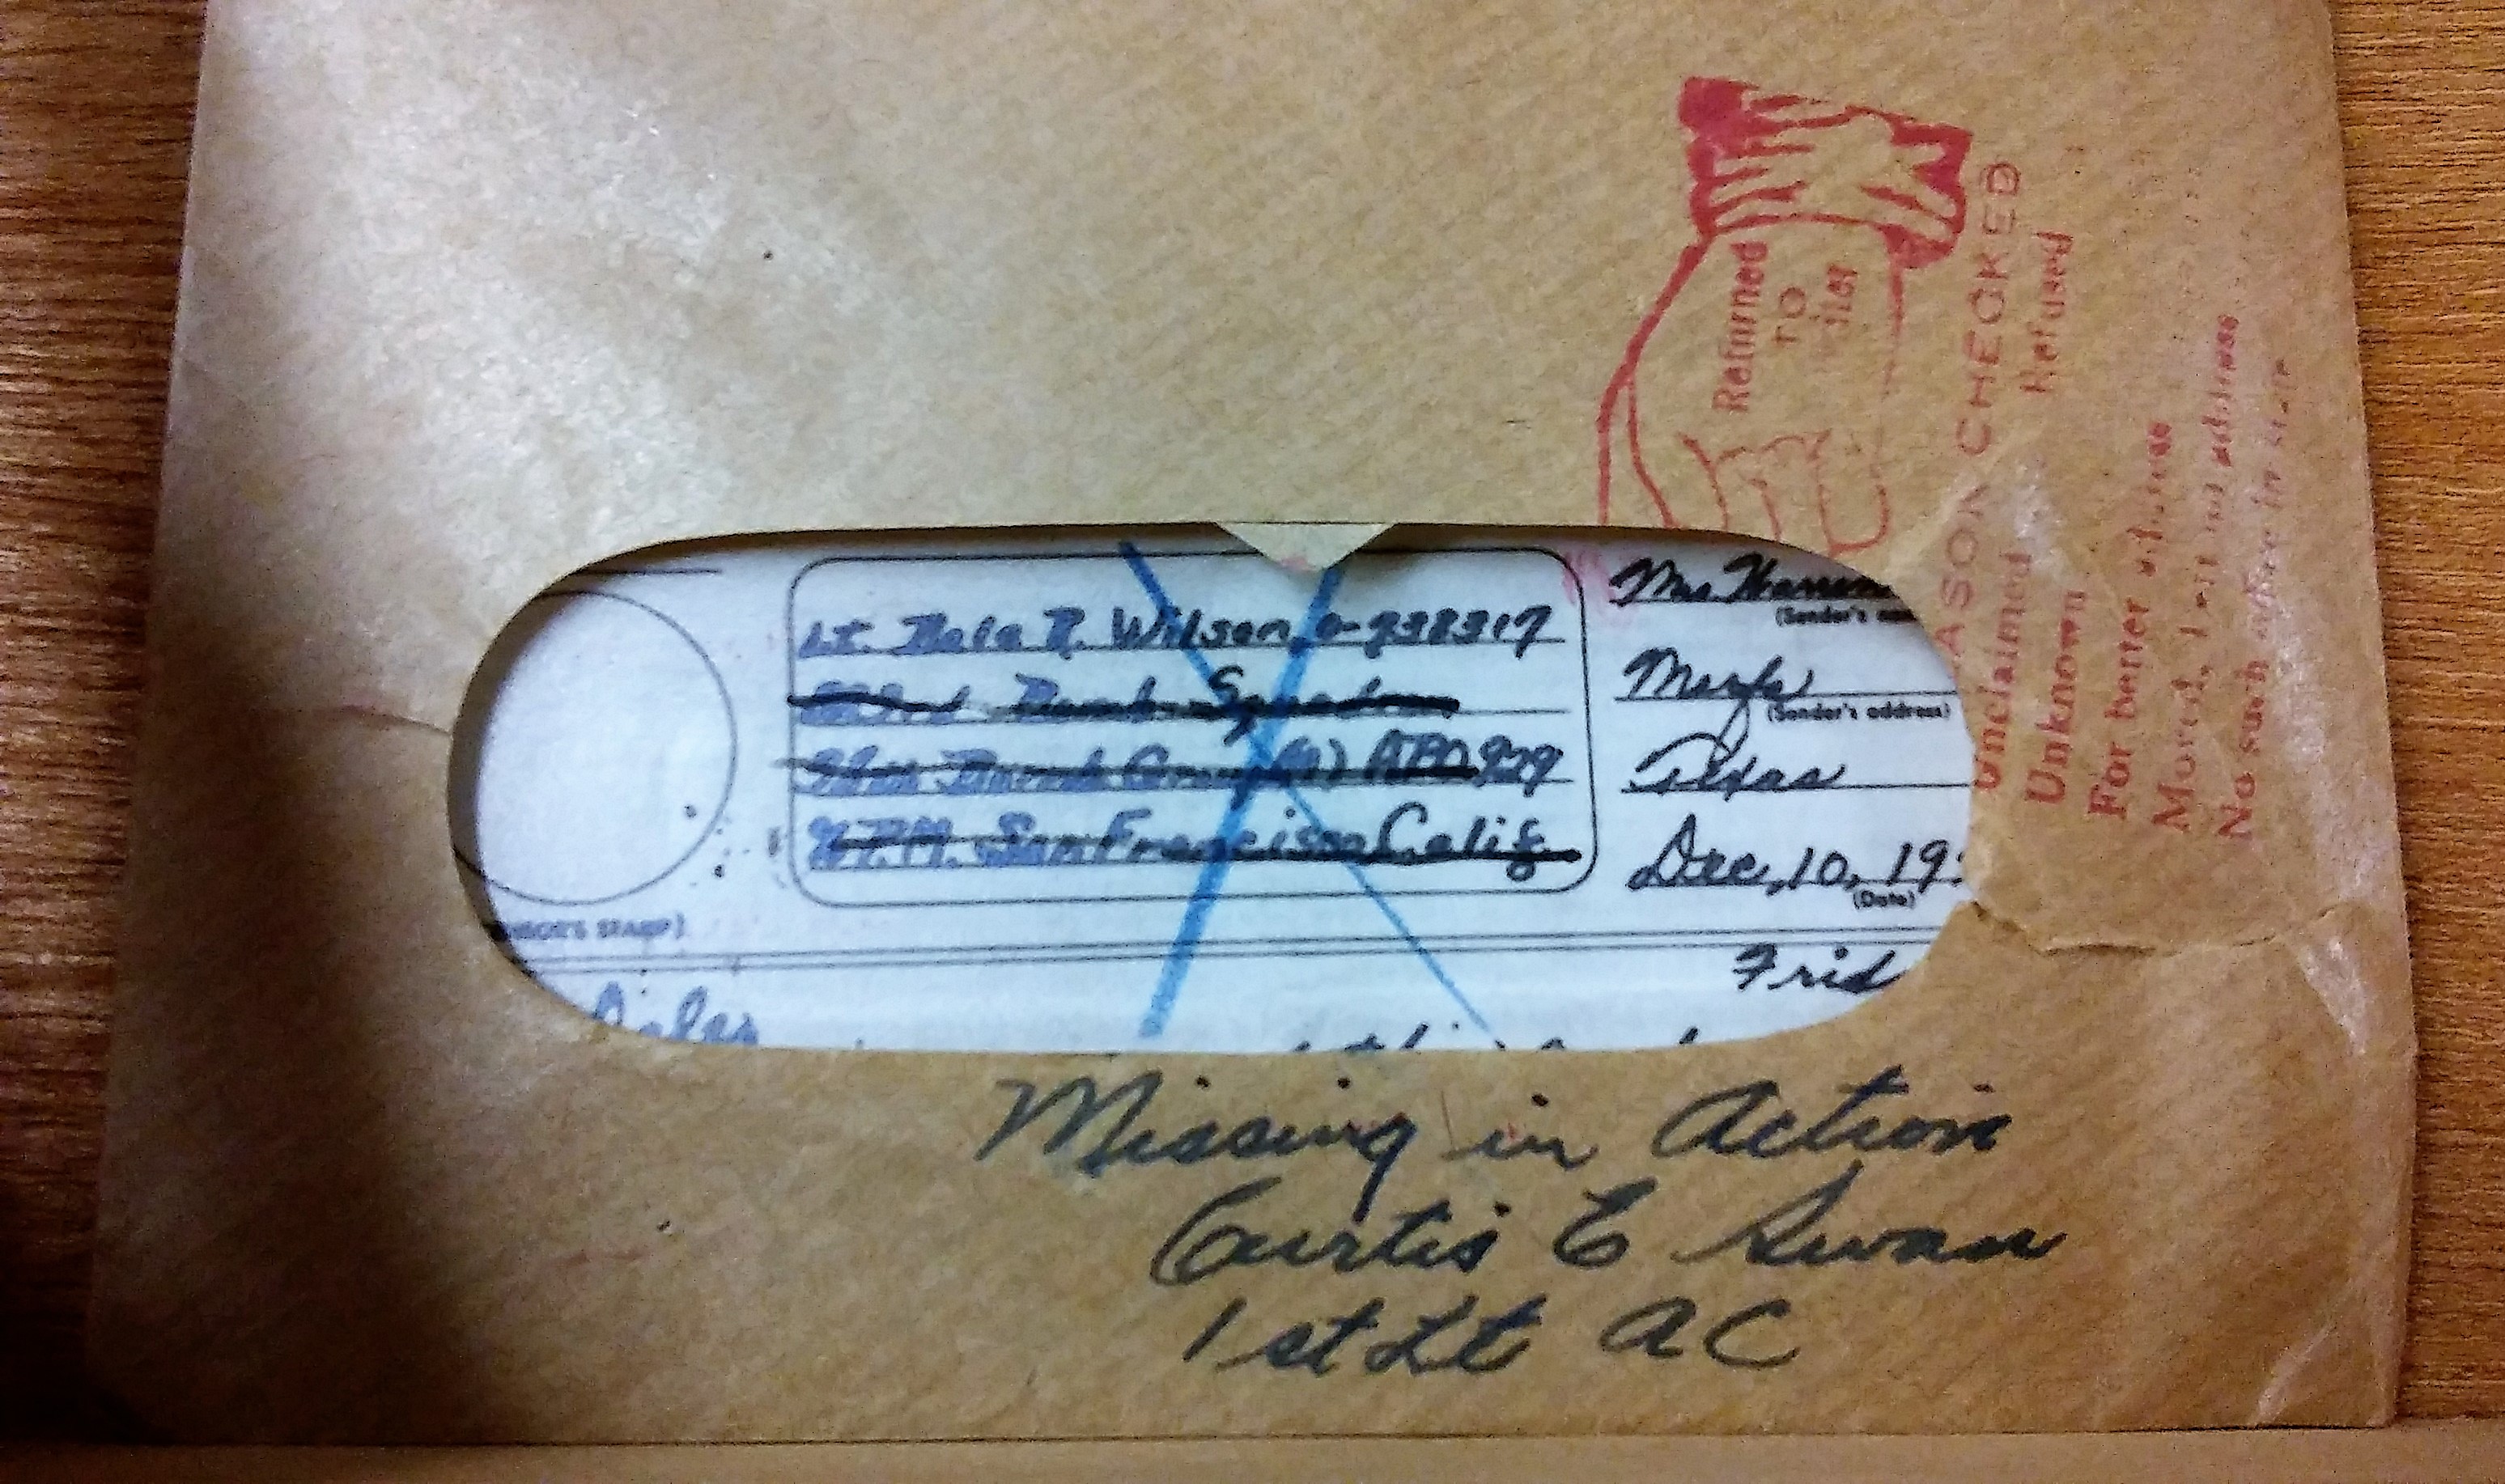 Returned
TO
REASON CHECKED
Unclaimed Refused
Unknown
For better address
Moved, Left no address
No such office in state
Lt. Dale R. Wilson, 0-738317
Bomb Squadron
Bomb Group (H) APO 929
% P.M. San Francisco Calif
Mrs
(Sender's
(Sender's address)
Texas
Dec, 10, 19
(Date)
STAMP)
Frid
Missing in Action
Curtis E Swan
1st Lt AC